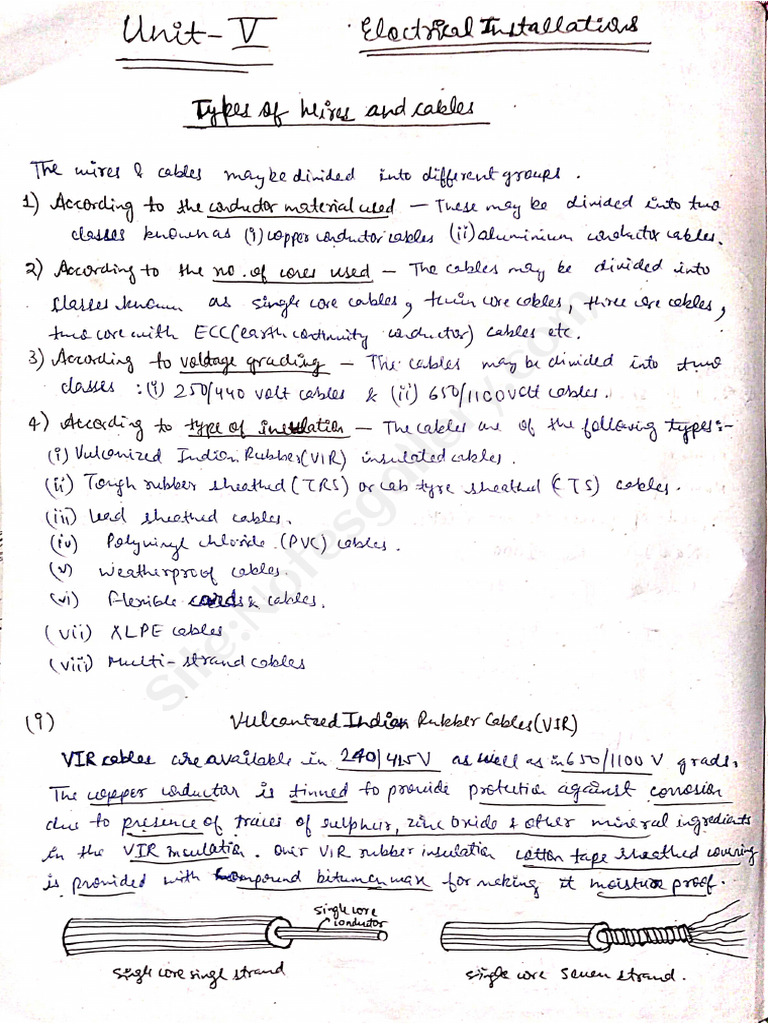 Unit-V
Electrical Installations
Types of Wires and cables
The wires & cables may be divided into different groups.
1) According to the conductor material used — These may be divided into two
classes known as (i) copper conductor cables (ii) aluminium conductor cables.
2) According to the no. of cores used — The cables may be divided into
classes known as single core cables, twin core cables, three core cables,
two core with ECC (earth continuity conductor) cables etc.
3) According to voltage grading — The cables may be divided into two
classes : (i) 250/440 volt cables & (ii) 650/1100 volt cables.
4) According to type of insulation — The cables are of the following types:-
(i) Vulcanized Indian Rubber (VIR) insulated cables.
(ii) Tough rubber sheathed (TRS) or cab tyre sheathed (CTS) cables.
(iii) Lead sheathed cables.
(iv) Polyvinyl chloride (PVC) cables.
(v) Weatherproof cables.
(vi) Flexible cords & cables.
(vii) XLPE cables
(viii) Multi-strand cables
Site:Notesgallery.com
(9) Vulcanized Indian Rubber Cables (VIR)
VIR cables are available in 240/415V as well as in 650/1100 V grads.
The copper conductor is tinned to provide protection against corrosion
due to presence of traces of sulphur, zinc oxide & other mineral ingredients
in the VIR insulation. Over VIR rubber insulation cotton tape sheathed covering
is provided with compound bitumen wax for making it moisture proof.
single core
conductor
single core single strand
single core seven strand.